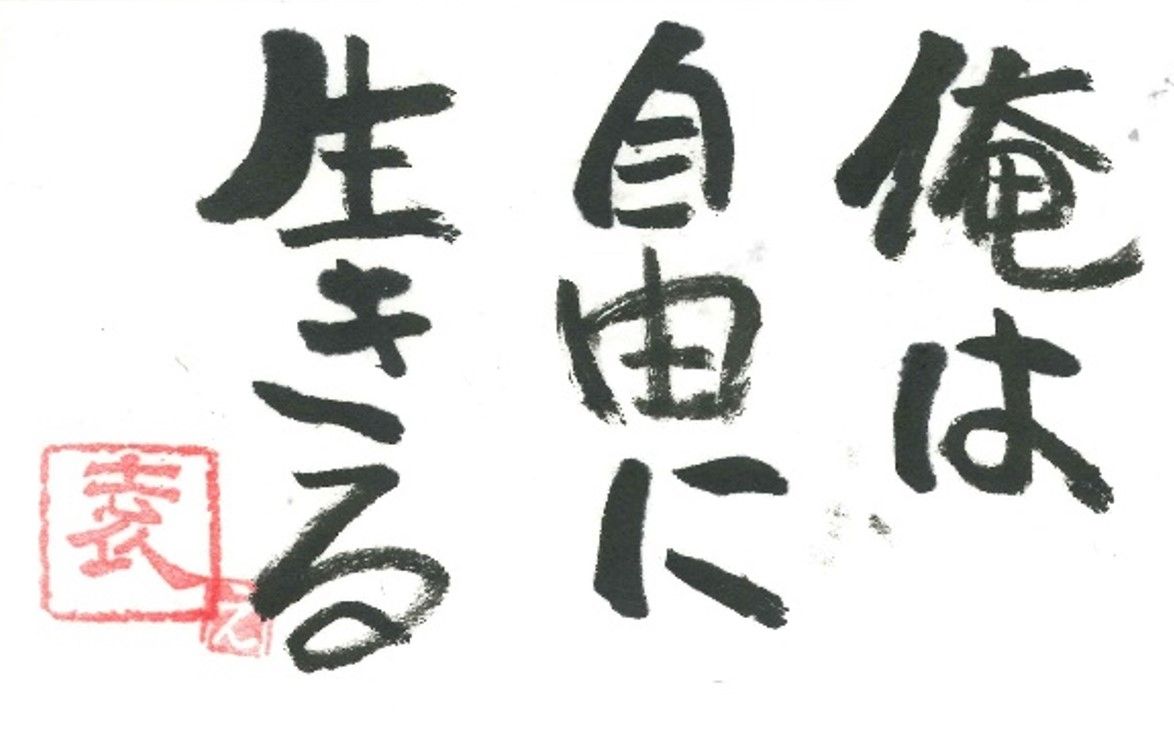 俺は
自由に
生きる
え